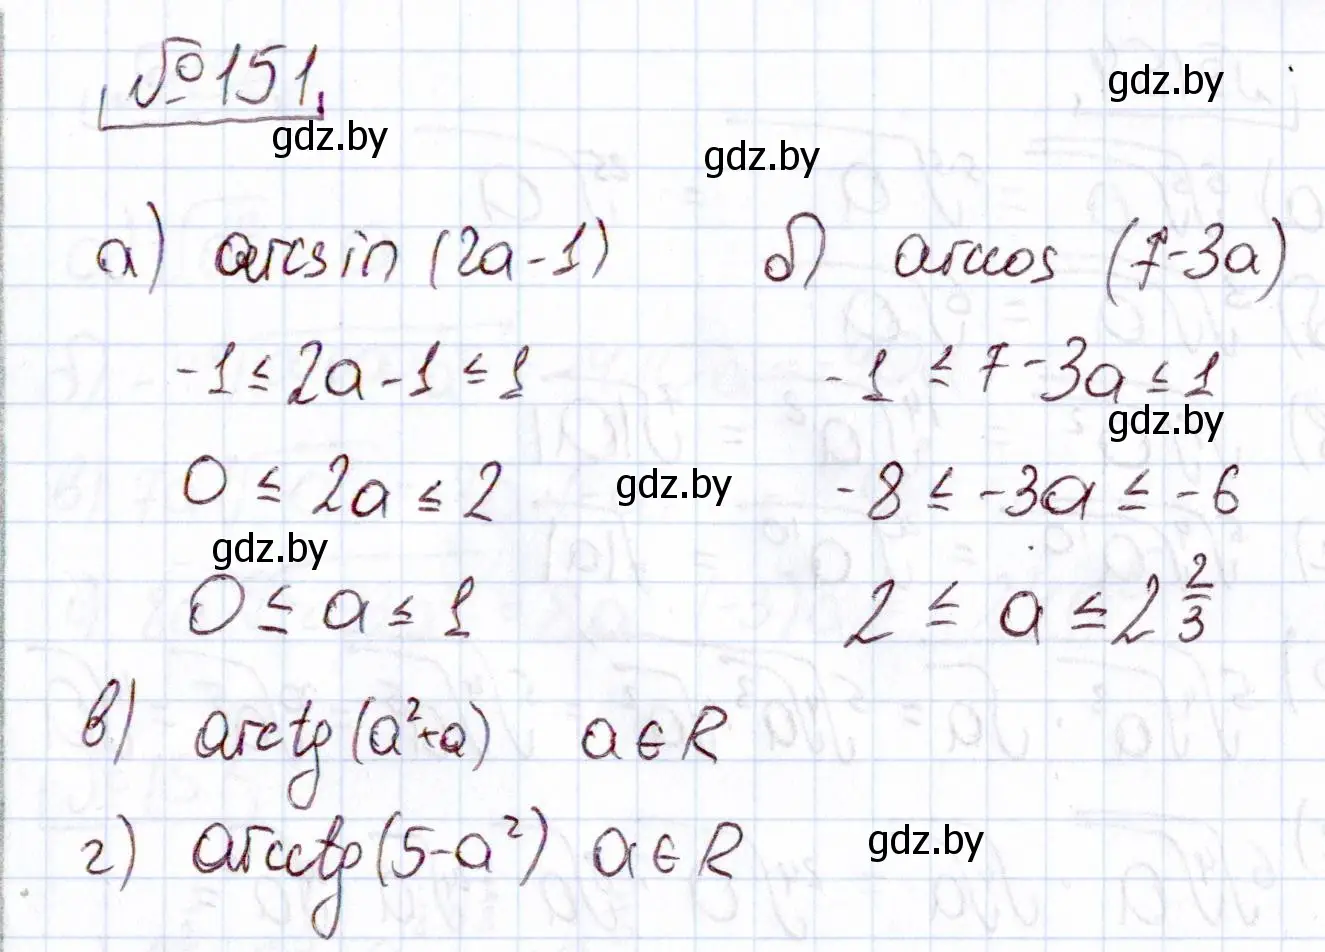 №151
gdz.by
gdz.by
gdz.by
а) arcsin (2a-1)
-1 ≤ 2a-1 ≤ 1
0 ≤ 2a ≤ 2
gdz.by
0 ≤ a ≤ 1
б) arccos (7-3a)
-1 ≤ 7-3a ≤ 1
gdz.by
gdz.by
-8 ≤ -3a ≤ -6
2 ≤ a ≤ 2 2/3
в) arctg (a²+a) a ∈ R
г) arcctg (5-a²) a ∈ R
gdz.by